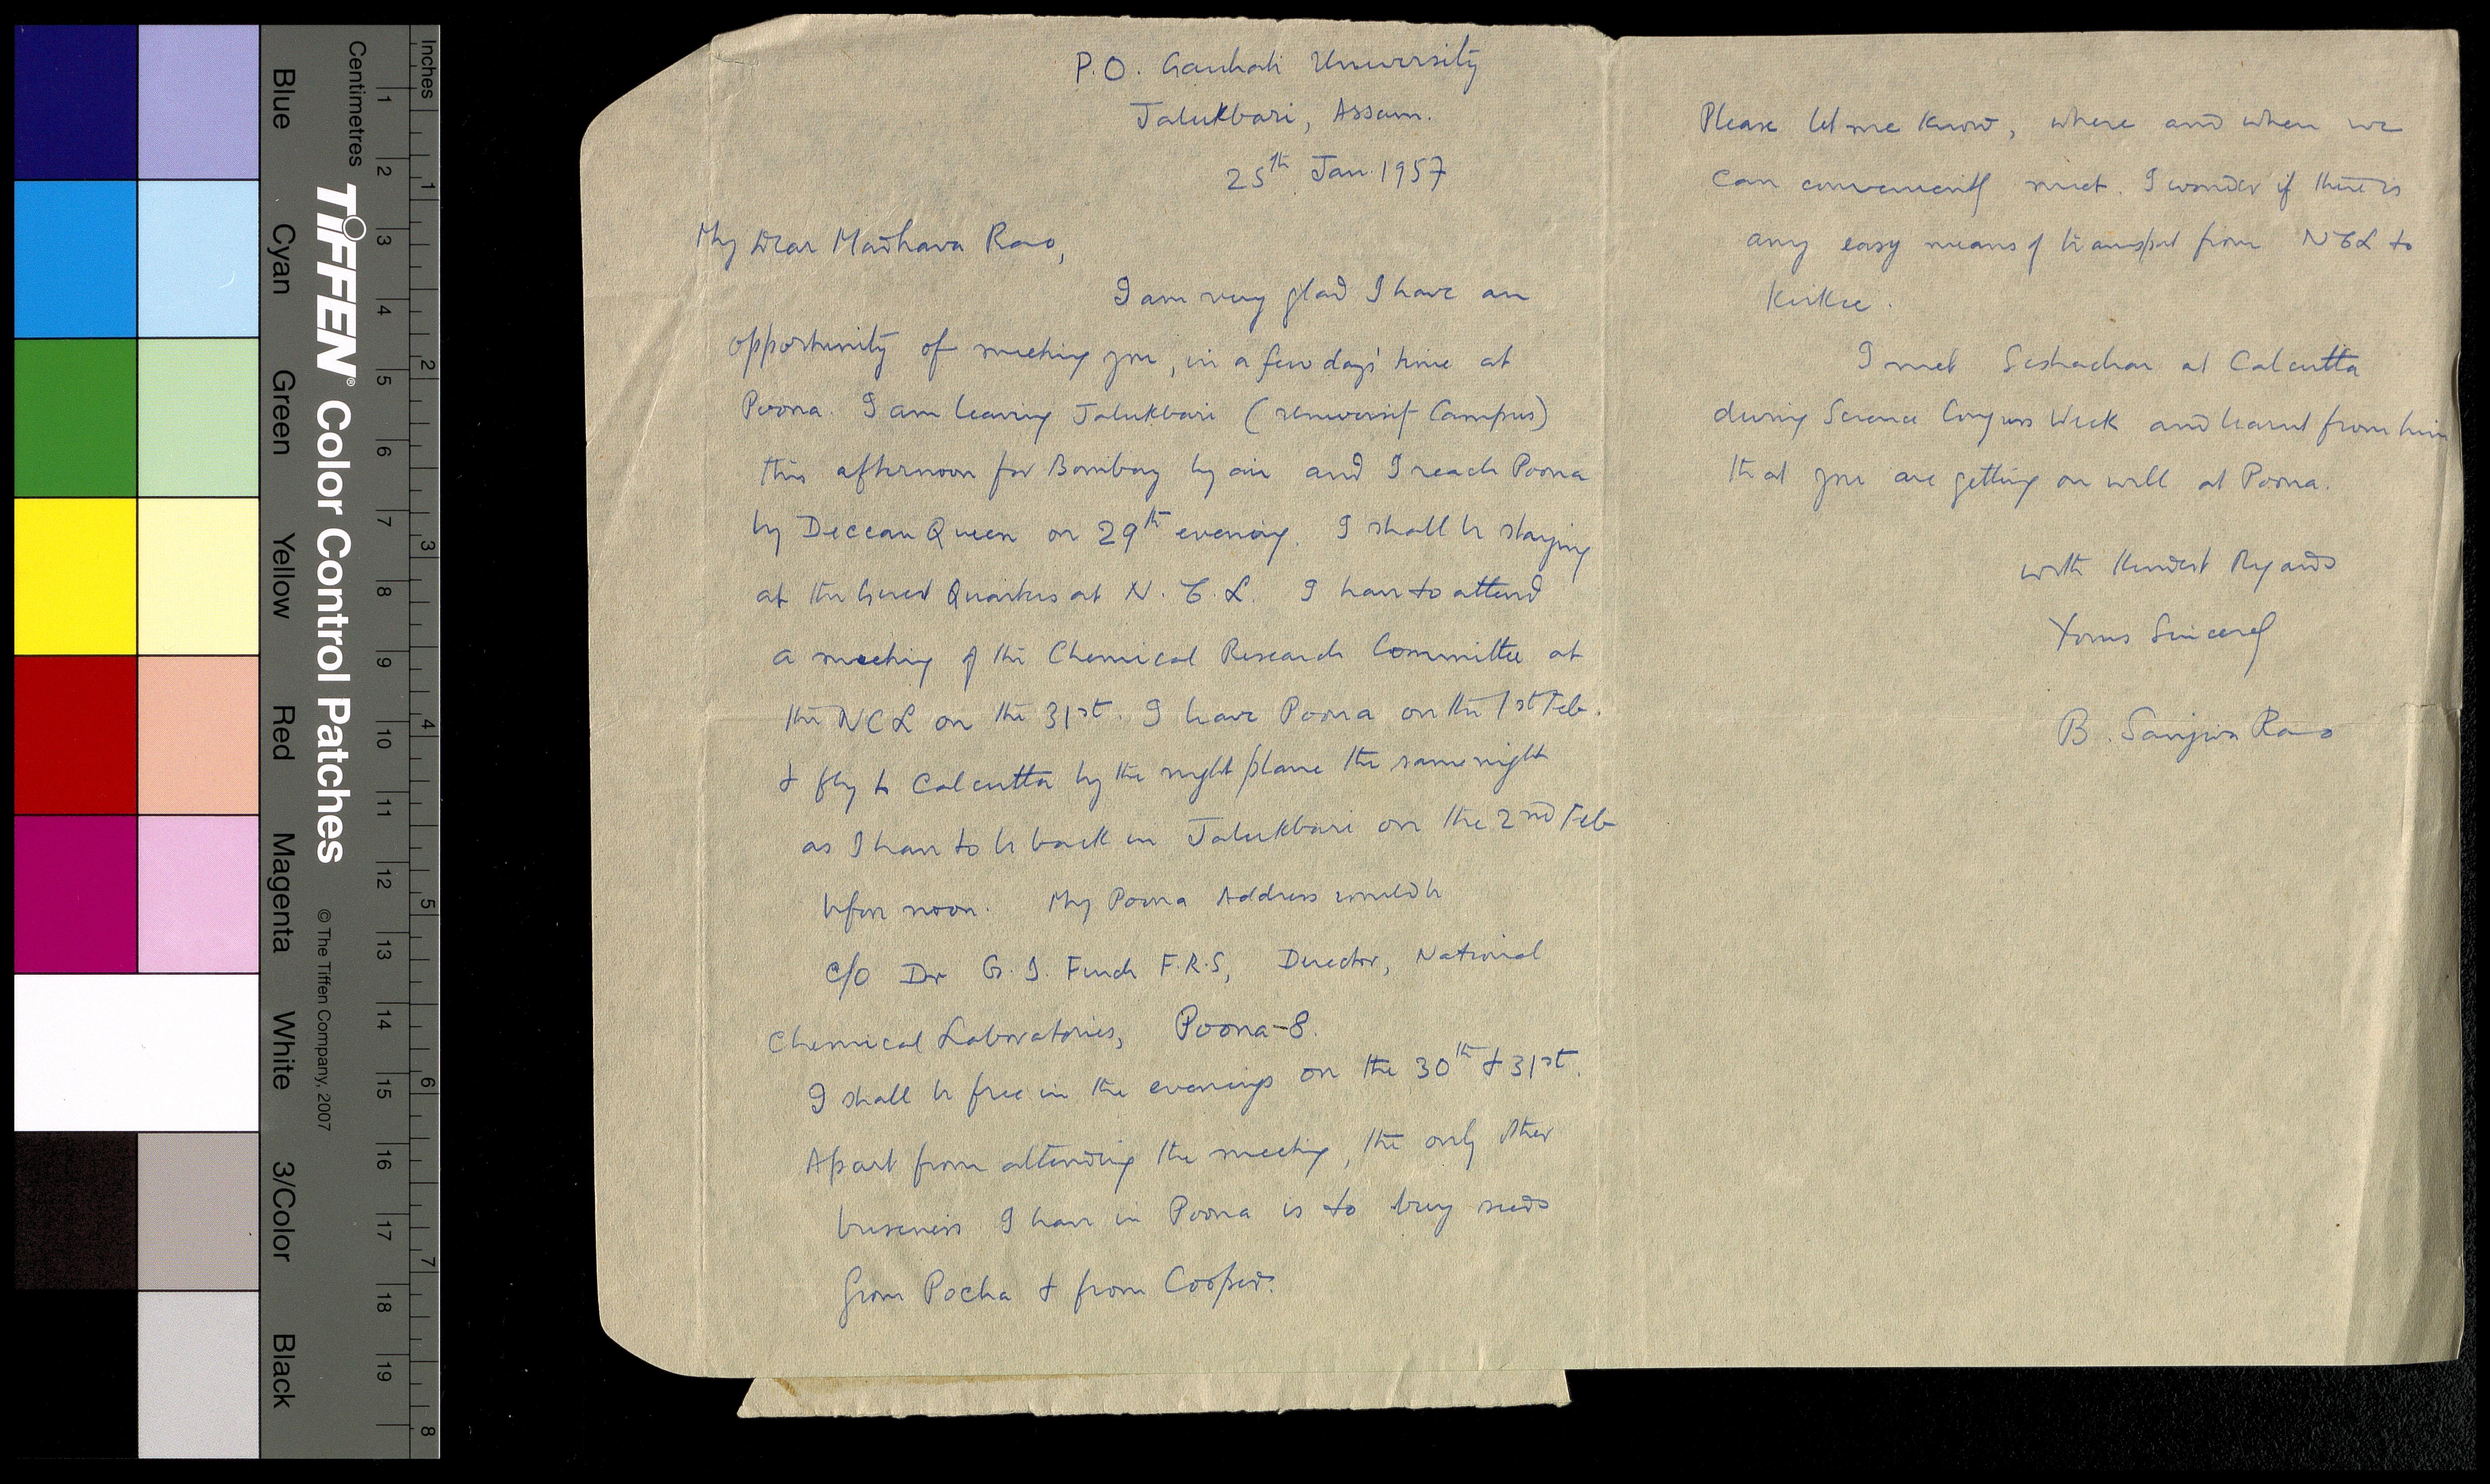 Inches
Centimetres
1 2 3 4 5 6 7 8 9 10 11 12 13 14 15 16 17 18 19
1 2 3 4 5 6 7 8
TIFFEN® Color Control Patches
© The Tiffen Company, 2007
Blue
Cyan
Green
Yellow
Red
Magenta
White
3/Color
Black
P.O. Gauhati University
Jalukbari, Assam.
25th Jan. 1957
My Dear Madhava Rao,
I am very glad I have an
opportunity of meeting you, in a few days' time at
Poona. I am leaving Jalukbari (University Campus)
this afternoon for Bombay by air and I reach Poona
by Deccan Queen on 29th evening. I shall be staying
at the Guest Quarters at N.C.L. I have to attend
a meeting of the Chemical Research Committee at
the NCL on the 31st. I leave Poona on the 1st Feb.
& fly to Calcutta by the night plane the same night
as I have to be back in Jalukbari on the 2nd Feb
before noon. My Poona Address would be
c/o Dr G. I. Finch F.R.S, Director, National
Chemical Laboratories, Poona-8.
I shall be free in the evenings on the 30th & 31st.
Apart from attending the meeting, the only other
business I have in Poona is to buy seeds
from Pocha & from Coopers.
Please let me know, where and when we
can conveniently meet. I wonder if there is
any easy means of transport from NCL to
Kirkee.
I met Seshachar at Calcutta
during Science Congress Week and learnt from him
that you are getting on well at Poona.
with Kindest Regards
Yours Sincerely
B. Sanjiva Rao